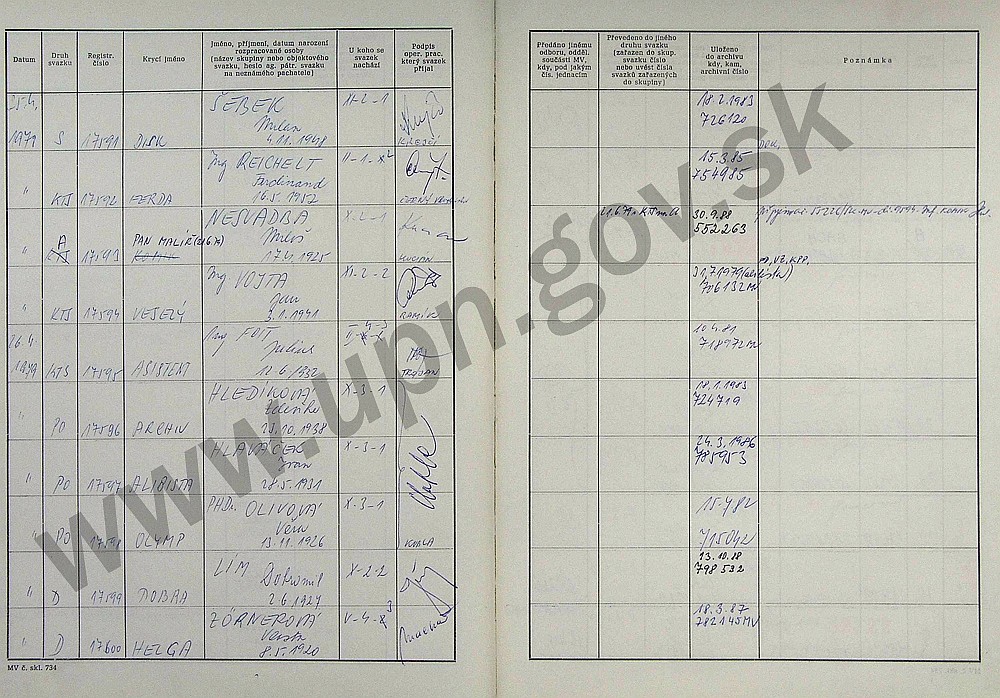 Datum
Druh svazku
Registr. číslo
Krycí jméno
Jméno, příjmení, datum narození
rozpracované osoby
(název skupiny nebo objektového
svazku, heslo ag. pátr. svazku
na neznámého pachatele)
U koho se svazek nachází
Podpis oper. prac. který svazek přijal
Předáno jinému
odboru, odděl.
součásti MV,
kdy, pod jakým
čís. jednacím
Převedeno do jiného
druhu svazku
(zařazen do skup.
svazku číslo
nebo uvést čísla
svazků zařazených
do skupiny)
Uloženo
do archivu
kdy, kam,
archivní číslo
Poznámka
25.4. ŠEBEK XI-2-1 18.2.1983
1979 S 17591 DISK Milan 4.11.1948 KREJČÍ 726120
" Ing REICHELT 15.3.85
KTS 17592 FERDA Ferdinand 16.5.1952 754985
" A NESVADBA X-2-1 30.9.88
17593 PAN MALÍŘ Miloš 17.4.1925 552263
" Ing VOJTA XI-2-2 31.7.1979
KTS 17594 VESELÝ Jan 3.1.1941 706132 MV
26.4. Ing FOIT 10.4.81
1979 KTS 17595 ASISTENT Julius 12.6.1932 TROJAN 718972 MV
" HLEDÍKOVÁ X-3-1 18.1.1983
PO 17596 ARCHIV Zdeňka 25.10.1938 724719
" HLAVÁČEK X-3-1 24.3.1986
PO 17597 ALIBISTA Ivan 28.5.1931 785953
" PHDr. OLIVOVÁ X-3-1
PO 17598 OLYMP Věra 13.11.1926 715042
" LÍM X-2-2 13.10.88
D 17599 DOBRA Dobromil 2.6.1927 798532
" ZÖRNEROVÁ 18.3.87
D 17600 HELGA 8.5.1920 782145 MV
MV č. skl. 734
www.upn.gov.sk